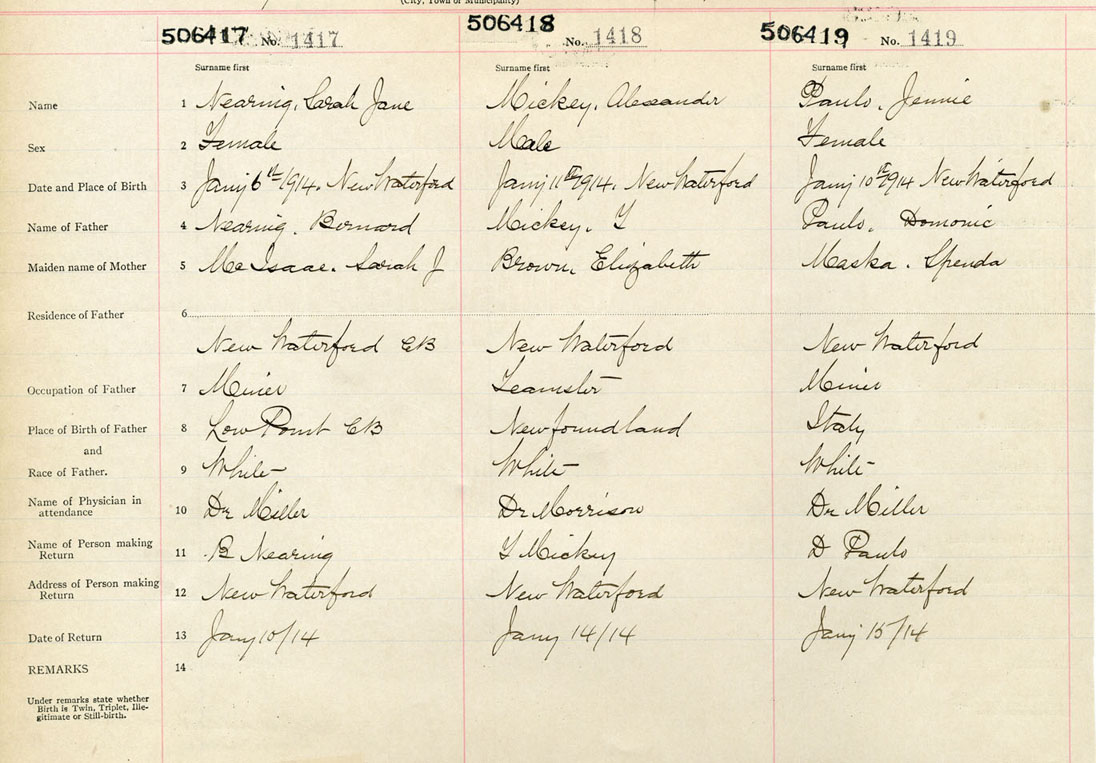 (City, Town or Municipality)
506417 No. 1417 506418 No. 1418 506419 No. 1419
Surname first Surname first Surname first
Name 1 Nearing, Sarah Jane Mickey, Alexander Paulo, Jennie
Sex 2 Female Male Female
Date and Place of Birth 3 Jany 6th 1914. New Waterford Jany 11th 1914. New Waterford Jany 10th 1914 New Waterford
Name of Father 4 Nearing. Bernard Mickey. T Paulo. Domonic
Maiden name of Mother 5 McIsaac. Sarah J Brown, Elizabeth Maska. Spenda
Residence of Father 6
New Waterford CB New Waterford New Waterford
Occupation of Father 7 Miner Teamster Miner
Place of Birth of Father 8 Low Point CB Newfoundland Italy
and
Race of Father. 9 White White White
Name of Physician in
attendance 10 Dr Miller Dr Morrison Dr Miller
Name of Person making
Return 11 B Nearing T Mickey D Paulo
Address of Person making
Return 12 New Waterford New Waterford New Waterford
Date of Return 13 Jany 10/14 Jany 14/14 Jany 15/14
REMARKS 14
Under remarks state whether
Birth is Twin, Triplet, Ille-
gitimate or Still-birth.